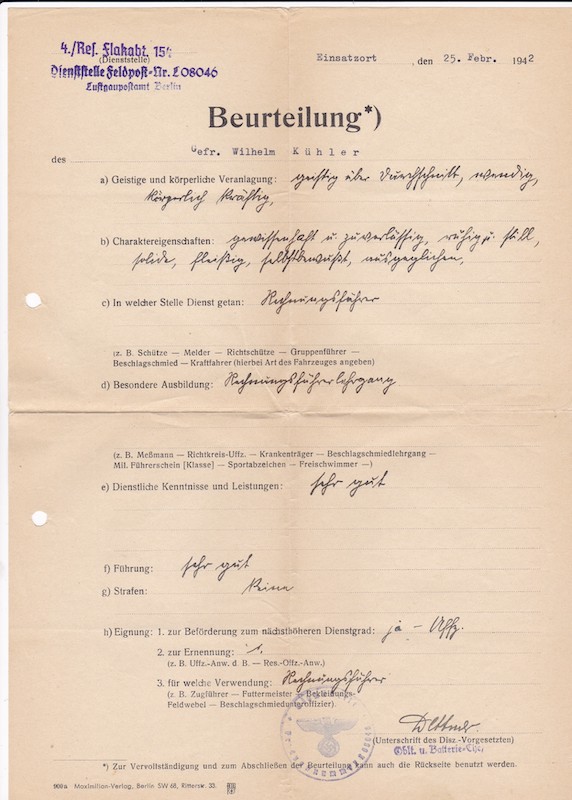 4./Res. Flakabt. 154
(Dienststelle)
Dienststelle Feldpost-Nr. L 08046
Luftgaupostamt Berlin
Einsatzort , den 25. Febr. 1942
Beurteilung*)
des Gefr. Wilhelm Kühler
a) Geistige und körperliche Veranlagung: geistig über Durchschnitt, wendig,
körperlich kräftig,
b) Charaktereigenschaften: gewissenhaft u. zuverlässig, ruhig u. still,
solide, fleißig, selbstbewußt, ausgeglichen,
c) In welcher Stelle Dienst getan: Rechnungsführer
(z. B. Schütze — Melder — Richtschütze — Gruppenführer —
Beschlagschmied — Kraftfahrer (hierbei Art des Fahrzeuges angeben)
d) Besondere Ausbildung: Rechnungsführerlehrgang
(z. B. Meßmann — Richtkreis-Uffz. — Krankenträger — Beschlagschmiedlehrgang —
Mil. Führerschein [Klasse] — Sportabzeichen — Freischwimmer —)
e) Dienstliche Kenntnisse und Leistungen: sehr gut
f) Führung: sehr gut
g) Strafen: keine
h) Eignung: 1. zur Beförderung zum nächsthöheren Dienstgrad: ja – Uffz.
2. zur Ernennung:
(z. B. Uffz.-Anw. d. B. — Res.-Offz.-Anw.)
3. für welche Verwendung: Rechnungsführer
(z. B. Zugführer — Futtermeister — Bekleidungs-
Feldwebel — Beschlagschmiedunteroffizier).
(Unterschrift des Disz.-Vorgesetzten)
Oblt. u. Batterie-Chef
*) Zur Vervollständigung und zum Abschließen der Beurteilung kann auch die Rückseite benutzt werden.
909a Maximilian-Verlag, Berlin SW 68, Ritterstr. 33.